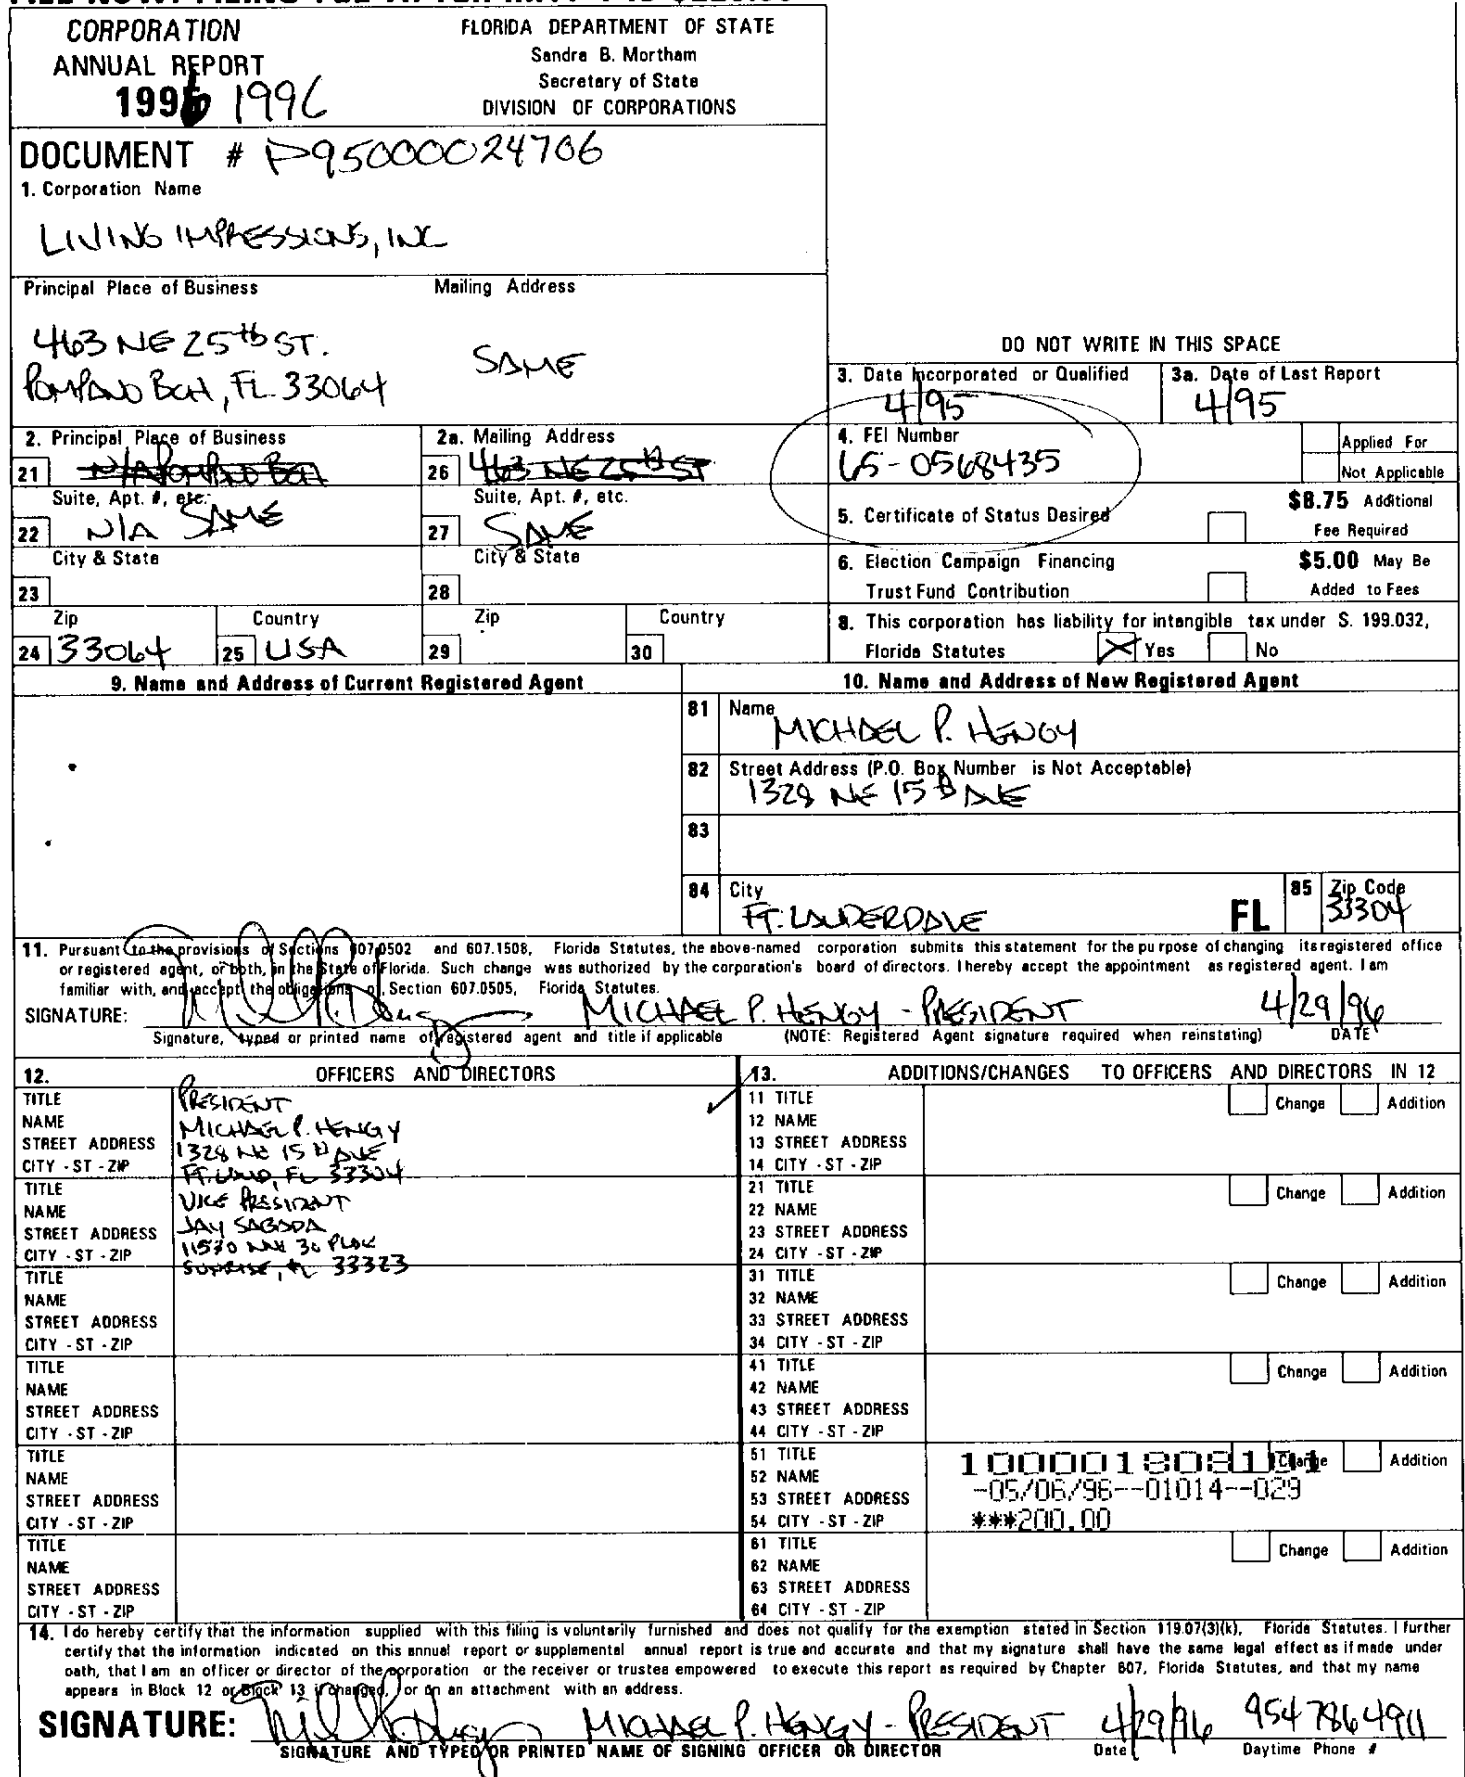 CORPORATION
ANNUAL REPORT
1996 1996
FLORIDA DEPARTMENT OF STATE
Sandra B. Mortham
Secretary of State
DIVISION OF CORPORATIONS
DOCUMENT # P95000024706
1. Corporation Name
LIVING IMPRESSIONS, INC
Principal Place of Business
463 NE 25th ST.
POMPANO BCH, FL 33064
Mailing Address
SAME
DO NOT WRITE IN THIS SPACE
3. Date Incorporated or Qualified
4/95
3a. Date of Last Report
4/95
2. Principal Place of Business
21 N/A POMPANO BCH
Suite, Apt. #, etc.
22 N/A SAME
City & State
23
Zip
24 33064
Country
25 USA
2a. Mailing Address
26 463 NE 25th ST
Suite, Apt. #, etc.
27 SAME
City & State
28
Zip
29
Country
30
4. FEI Number
65-0568435
Applied For
Not Applicable
5. Certificate of Status Desired
$8.75 Additional
Fee Required
6. Election Campaign Financing
Trust Fund Contribution
$5.00 May Be
Added to Fees
8. This corporation has liability for intangible tax under S. 199.032,
Florida Statutes Yes No
9. Name and Address of Current Registered Agent
10. Name and Address of New Registered Agent
81 Name
MICHAEL P. HENGY
82 Street Address (P.O. Box Number is Not Acceptable)
1328 NE 15th AVE
83
84 City
FT. LAUDERDALE FL
85 Zip Code
33304
11. Pursuant to the provisions of Sections 607.0502 and 607.1508, Florida Statutes, the above-named corporation submits this statement for the purpose of changing its registered office
or registered agent, or both, in the State of Florida. Such change was authorized by the corporation's board of directors. I hereby accept the appointment as registered agent. I am
familiar with, and accept the obligations of, Section 607.0505, Florida Statutes.
SIGNATURE: MICHAEL P. HENGY - PRESIDENT 4/29/96
Signature, typed or printed name of registered agent and title if applicable (NOTE: Registered Agent signature required when reinstating) DATE
12. OFFICERS AND DIRECTORS
TITLE PRESIDENT
NAME MICHAEL P. HENGY
STREET ADDRESS 1328 NE 15th AVE
CITY - ST - ZIP FT. LAUD, FL 33304
TITLE VICE PRESIDENT
NAME JAY
STREET ADDRESS 11570 NW 30 PLACE
CITY - ST - ZIP SUNRISE, FL 33323
TITLE
NAME
STREET ADDRESS
CITY - ST - ZIP
TITLE
NAME
STREET ADDRESS
CITY - ST - ZIP
TITLE
NAME
STREET ADDRESS
CITY - ST - ZIP
TITLE
NAME
STREET ADDRESS
CITY - ST - ZIP
13. ADDITIONS/CHANGES TO OFFICERS AND DIRECTORS IN 12
11 TITLE Change Addition
12 NAME
13 STREET ADDRESS
14 CITY - ST - ZIP
21 TITLE Change Addition
22 NAME
23 STREET ADDRESS
24 CITY - ST - ZIP
31 TITLE Change Addition
32 NAME
33 STREET ADDRESS
34 CITY - ST - ZIP
41 TITLE Change Addition
42 NAME
43 STREET ADDRESS
44 CITY - ST - ZIP
51 TITLE 100001808101 Change Addition
52 NAME
53 STREET ADDRESS -05/06/96--01014--029
54 CITY - ST - ZIP ***200.00
61 TITLE Change Addition
62 NAME
63 STREET ADDRESS
64 CITY - ST - ZIP
14. I do hereby certify that the information supplied with this filing is voluntarily furnished and does not qualify for the exemption stated in Section 119.07(3)(k), Florida Statutes. I further
certify that the information indicated on this annual report or supplemental annual report is true and accurate and that my signature shall have the same legal effect as if made under
oath, that I am an officer or director of the corporation or the receiver or trustee empowered to execute this report as required by Chapter 607, Florida Statutes, and that my name
appears in Block 12 or Block 13 if changed, or on an attachment with an address.
SIGNATURE: MICHAEL P. HENGY - PRESIDENT 4/29/96 954 786 4911
SIGNATURE AND TYPED OR PRINTED NAME OF SIGNING OFFICER OR DIRECTOR Date Daytime Phone #